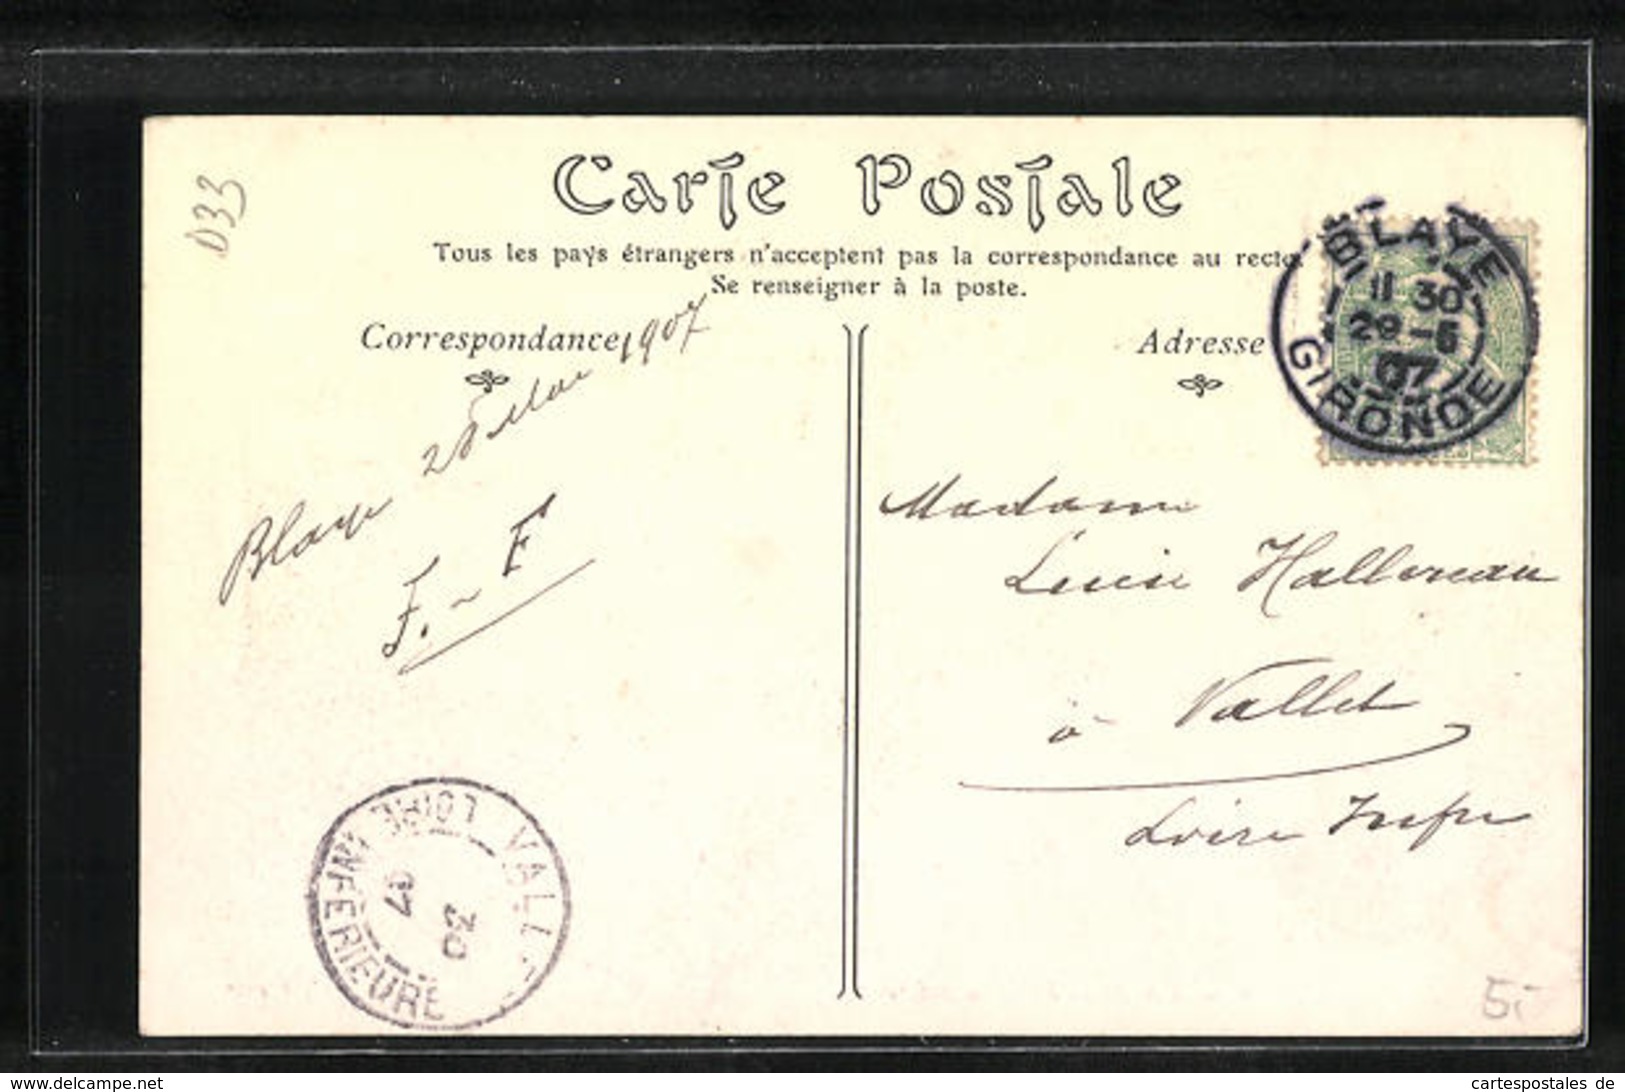 D33
Carte Postale
Tous les pays étrangers n'acceptent pas la correspondance au recto.
Se renseigner à la poste.
Correspondance
Adresse
BLAYE
11 30
29-5
07
GIRONDE
Blaye 28 Mai 1907
F. - F
Madame
Lucie Hallereau
à Vallet
Loire Infre
LOIRE INFERIEURE
VALL
30
07
5.-
cartespostales de
www.delcampe.net